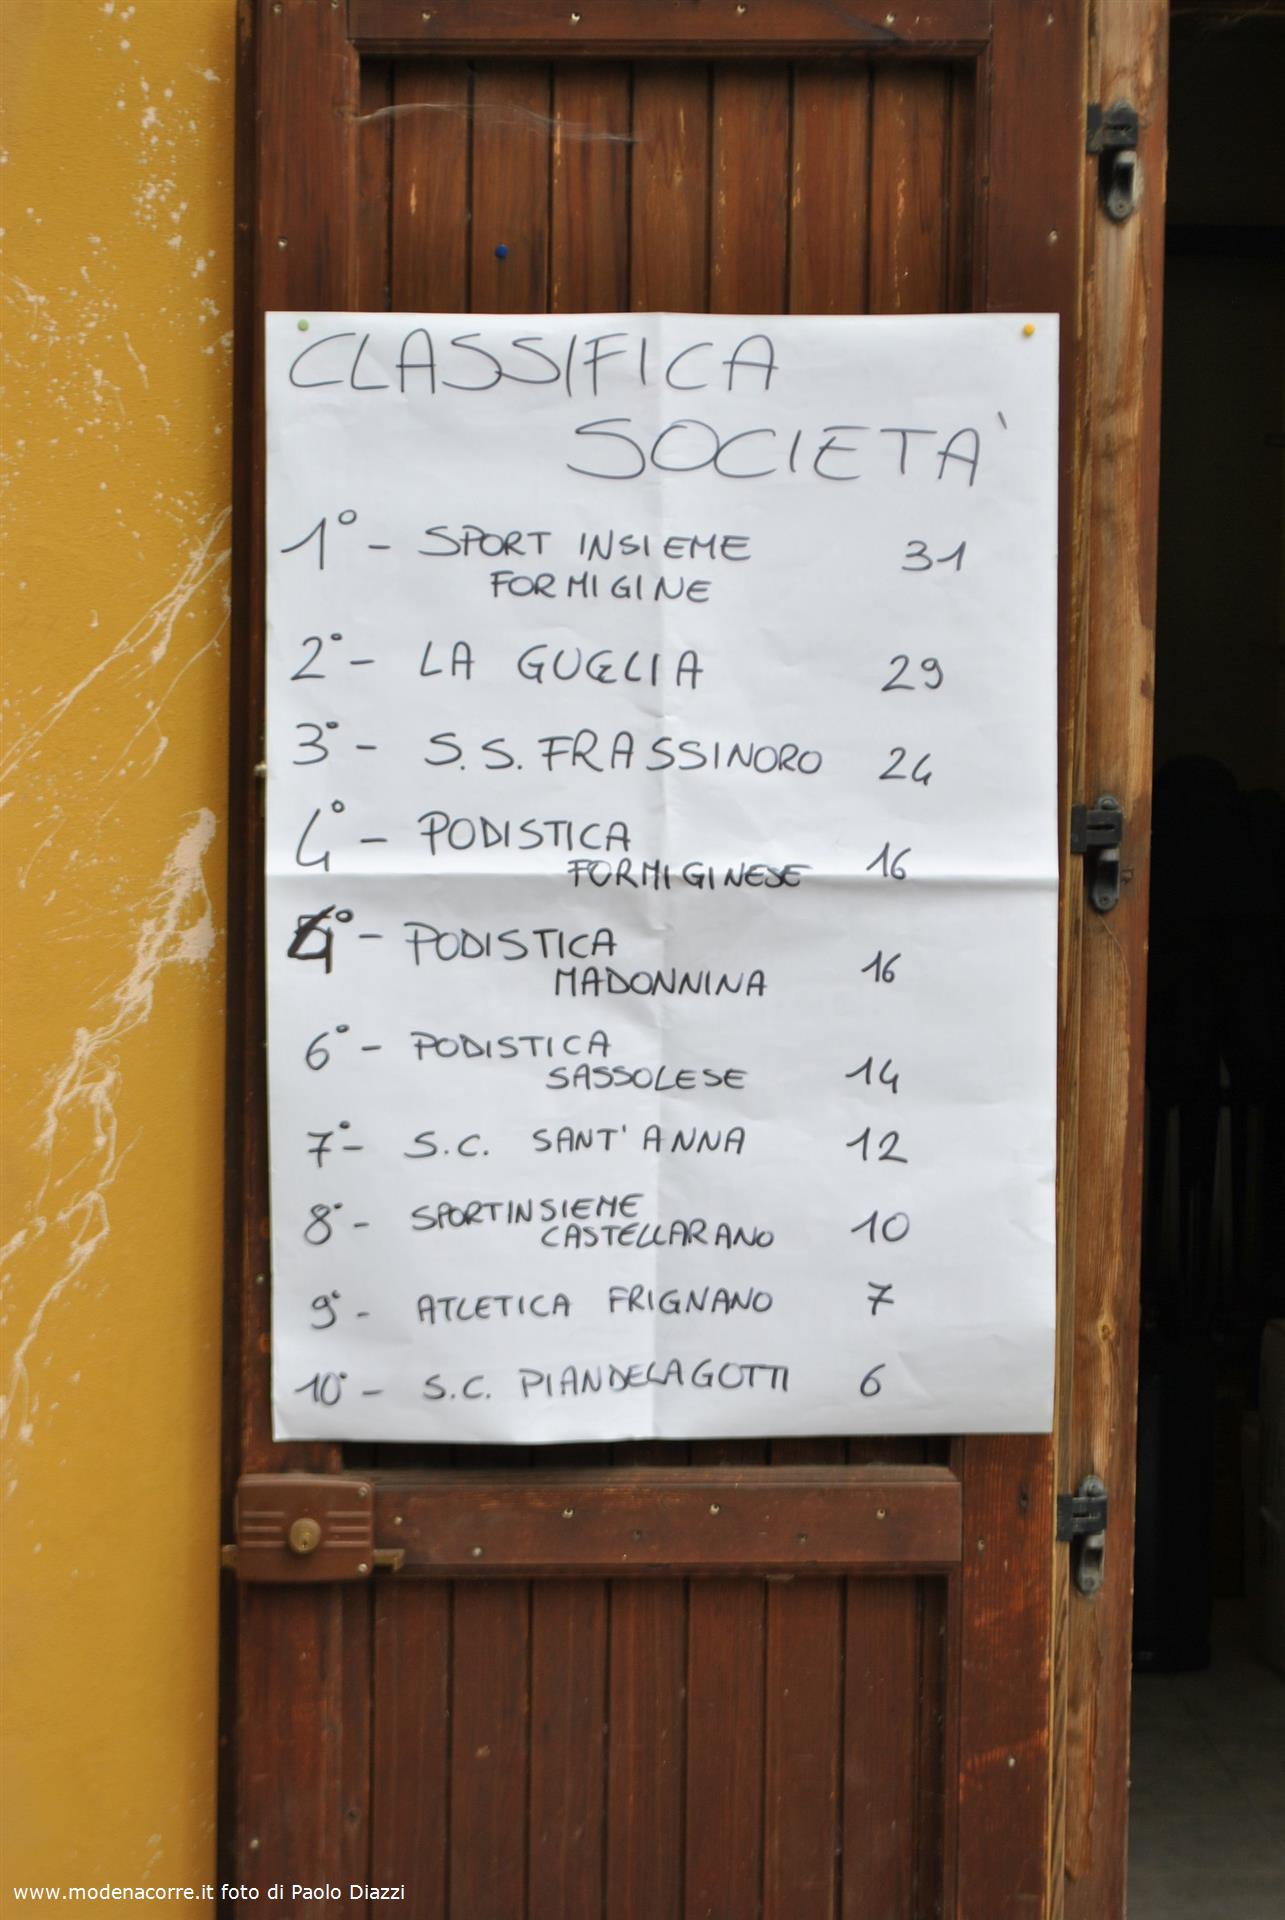 CLASSIFICA
SOCIETA'
1° - SPORT INSIEME 31
FORMIGINE
2° - LA GUGLIA 29
3° - S.S. FRASSINORO 24
4° - PODISTICA
FORMIGINESE 16
4° - PODISTICA
MADONNINA 16
6° - PODISTICA
SASSOLESE 14
7° - S.C. SANT'ANNA 12
8° - SPORTINSIEME
CASTELLARANO 10
9° - ATLETICA FRIGNANO 7
10° - S.C. PIANDELAGOTTI 6
www.modenacorre.it foto di Paolo Diazzi